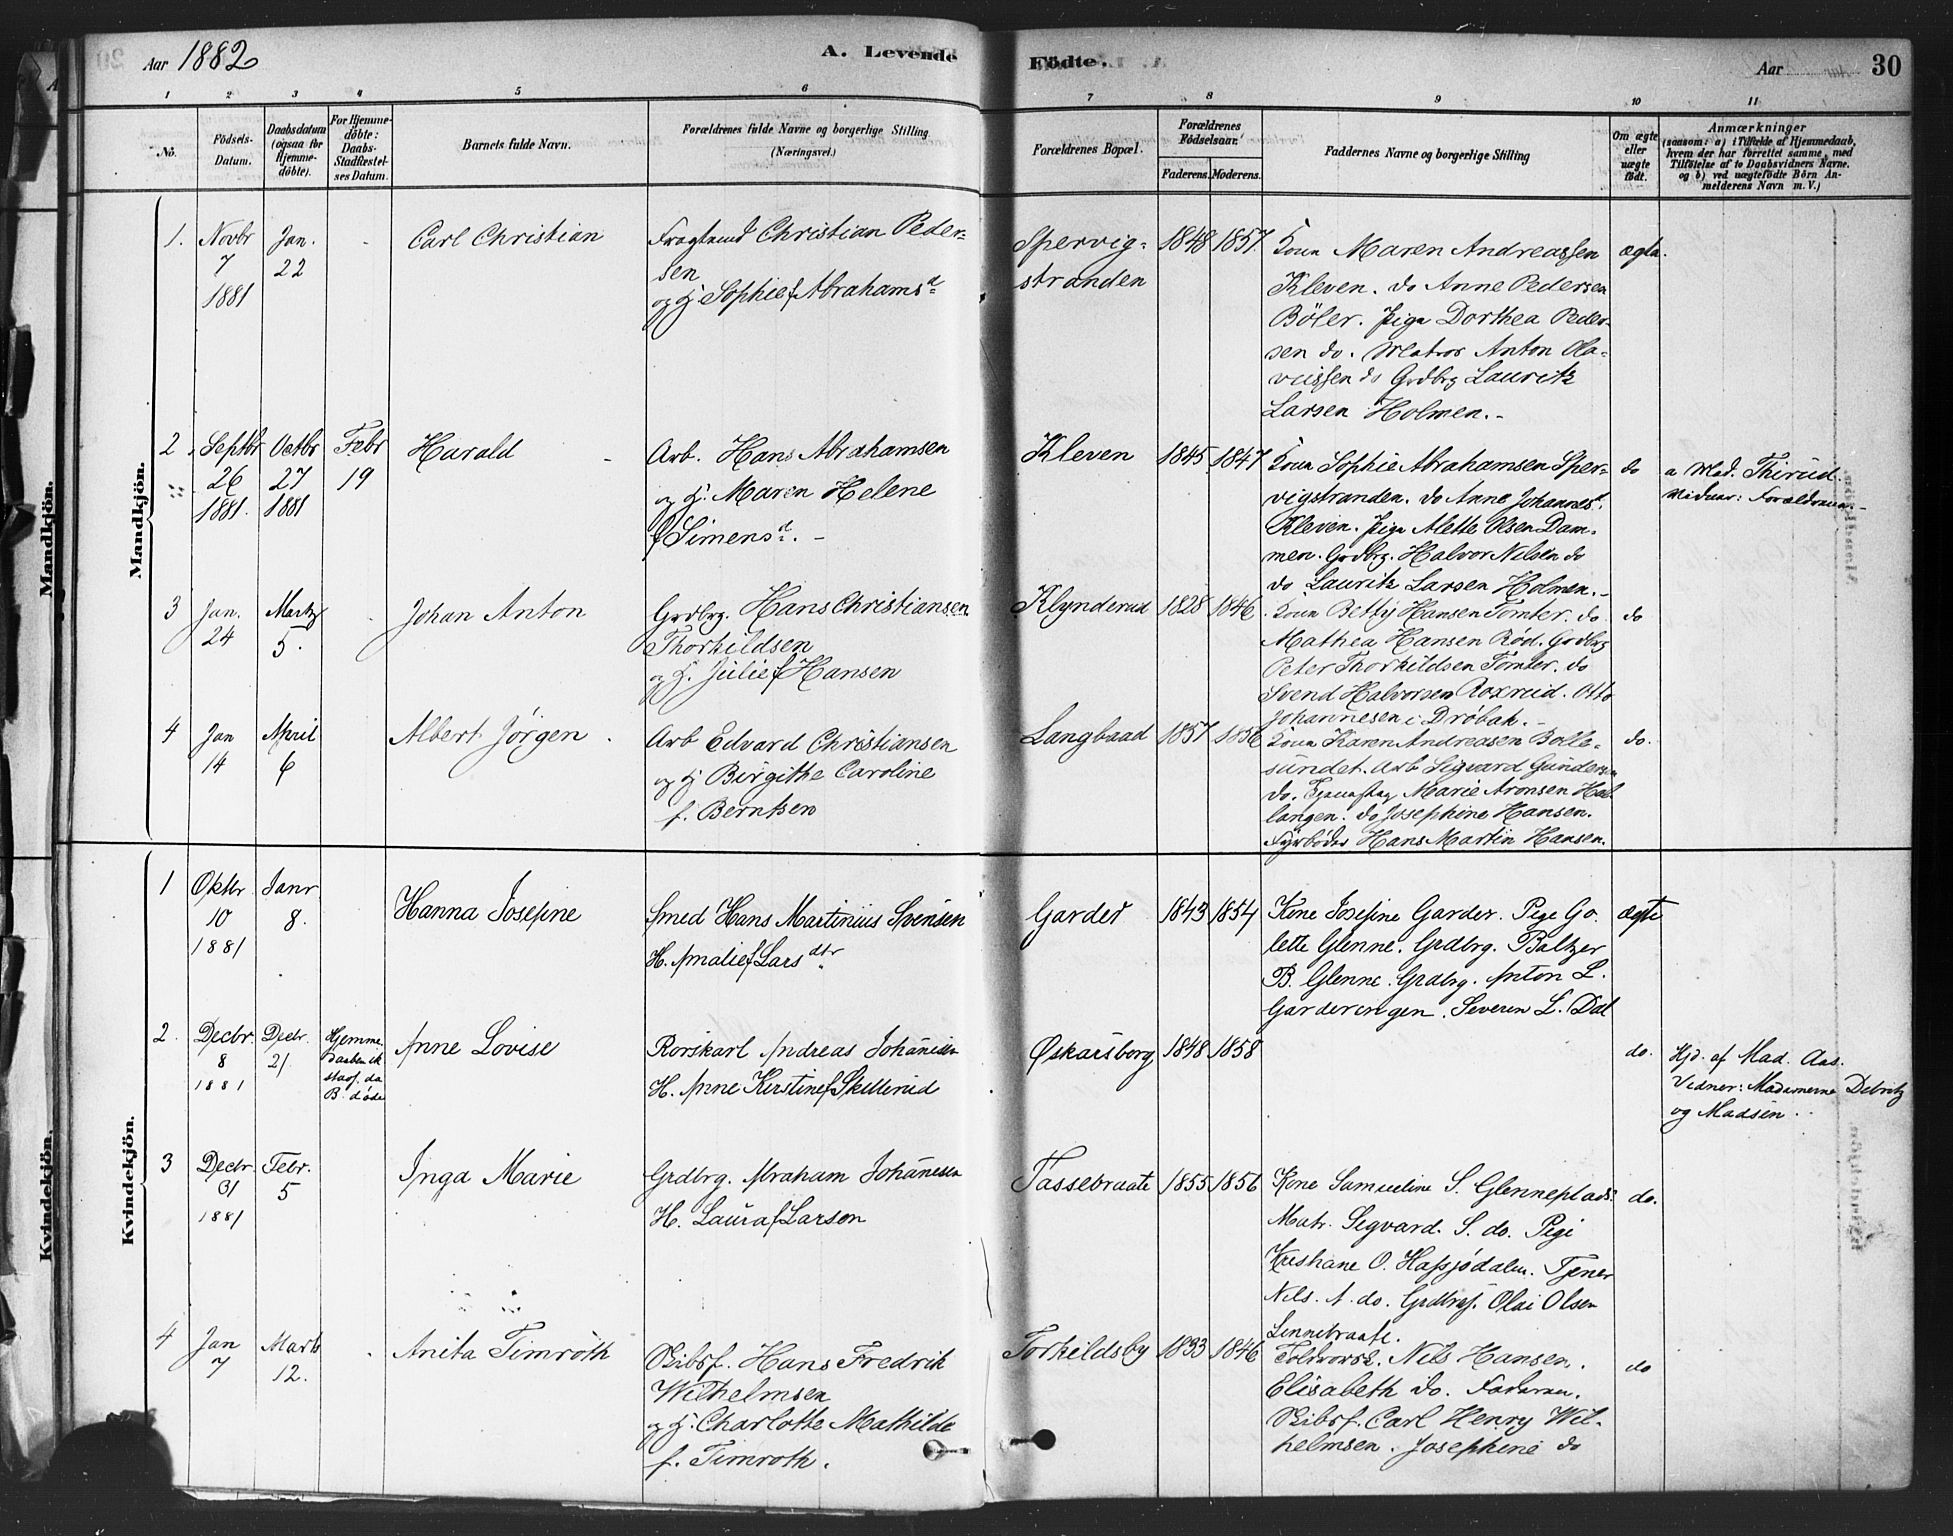 Aar 1882
A. Levende
Födte.
Aar
30
1 2 3 4 5 6 7 8 9 10 11
No.
Födsels-
Datum.
Daabsdatum
(ogsaa for
Hjemme-
döbte).
For Hjemme-
döbte:
Daabs-
Stadfæstel-
ses Datum.
Barnets fulde Navn.
Forældrenes fulde Navne og borgerlige Stilling
(Næringsvei.)
Forældrenes Bopæl.
Forældrenes
Födselsaar.
Faderens. Moderens.
Faddernes Navne og borgerlige Stilling
Om ægte
eller
uægte
födt.
Anmærkninger
(saasom: a) i Tilfælde af Hjemmedaab,
hvem der har forrettet samme, med
Tilföielse af to Daabsvidners Navne.
og b) ved uægtefödte Börn An-
melderens Navn m. V.)
Mandkjön.
Mandkjön.
1.
Novbr
7
1881
Jan.
22
Carl Christian
Christian Peder-
sen
og H. Sophie f. Abrahamsd
Spervig-
stranden
1848
1857
Kone Maren Andreassen
Kleven. do Anne Pedersen
Böler. Pige Dorthea Peder-
sen do. Matros Anton Ola-
viussen do Grdbrg Lauritz
Larsen Holmen.
ægte.
2
Septbr
26
1881.
Octbr
27
1881
Febr
19
Harald
Arb. Hans Abrahamsen
og H. Maren Helene
f Simensd.
Kleven
1845
1847
Kone Sophie Abrahamsen Sper-
vigstranden. do Anne Johannesd.
Kleven. Pige Alette Olsen Dam-
men. Grdbrg. Halvor Nilsen do
do Lauritz Larsen Holmen.
do
a Mad. Thirud.
Vidner: Forældrene.
3
Jan.
24
Martz
5.
Johan Anton
Grdbrg. Hans Christiansen
Thorkildsen
og H. Julie f Hansen
Klynderud
1828
1846
Kone Betty Hansen Tomter. do
Mathea Hansen Röd. Grdbrg
Peter Thorkildsen Tomter. do
Svend Halvorsen Roxrud. Otto
Johannesen i Dröbak.
do
4
Jan
14
April
6
Albert Jörgen
Arb Edvard Christiansen
og H Birgithe Caroline
f. Berntsen
Langbaad
1857
1856
Kone Karen Andreasen Bolle-
sundet. Arb Sigvard Gundersen
do. Marie Aronsen Hal-
langen. do Josephine Hansen.
Fyrböder Hans Martin Hansen.
do.
Kvindekjön.
Kvindekjön.
1
Oktbr
10
1881
Janr
8.
Hanna Josefine
Smed Hans Martinius Svensen
H. Amalie f Lars dtr
Garder
1843
1854
Kone Josefine Garder. Pige Go-
lette Glenne. Grdbrg. Baltzer
B. Glenne. Grdbrg. Anton L.
Garderengen. Severin L. Dal
Ægte
2.
Decbr.
8
1881
Decbr.
21
Hjemme-
daaben ik
stadf. da
B. döde
Anne Lovise
Rorskarl Andreas Johanesen
H. Anne Kirstine f Skillerud
Oskarsborg
1848
1858
do.
Hjd. af Mad. Aas.
Vidner: Madamerne Debritz
og Madsen.
3
Decbr.
31
1881
Febr.
5
Inga Marie
Grdbrg. Abraham Johanesen
H. Laura f Larsen
Tassebraate
1855
1856
Kone Samueline S. Glenneplads.
Matr. Segvard. S. do. Pige
Kristiane O. Hassjödalen. Tjener
Nils. A. do. Grdbrs. Olai Olsen
Linnebraate.
do.
4
Jan
7
Marts
12.
Anita Timroth
Skibsf. Hans Fredrik
Wilhelmsen
og H. Charlotte Mathilde
f. Timroth.
Torkildsby
1833
1846
Nils Hansen.
Elisabeth do. Faderen.
Skibsf. Carl Henry Wil-
helmsen. Josephine do
do